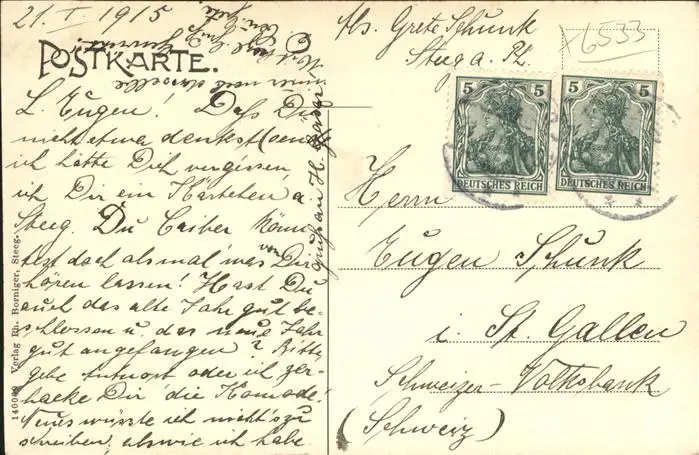 21. I. 1915
POSTKARTE.
L. Eugen! Daß Du
nicht etwa denkst
ich hätte Dich vergessen,
ich Dir ein Kärtchen a.
Steeg. Du Lieber könn-
test doch als mal was von Dir
hören lassen! Hast Du
auch das alte Jahr gut be-
schlossen u. das neue Jahr
gut angefangen? Bitte
gebe Antwort oder ich zer-
hacke Dir die Komode!
Neues wüsste ich nicht zu
schreiben, als wie ich habe
immer noch
Abs. Grete Schunk
Steeg a. Rh.
+6533
5 5
DEUTSCHES REICH
5 5
DEUTSCHES REICH
Herrn
Eugen Schunk
i. St. Gallen
Schweizer-Volksbank
(Schweiz)
140069 Verlag Ph. Borniger, Steeg.